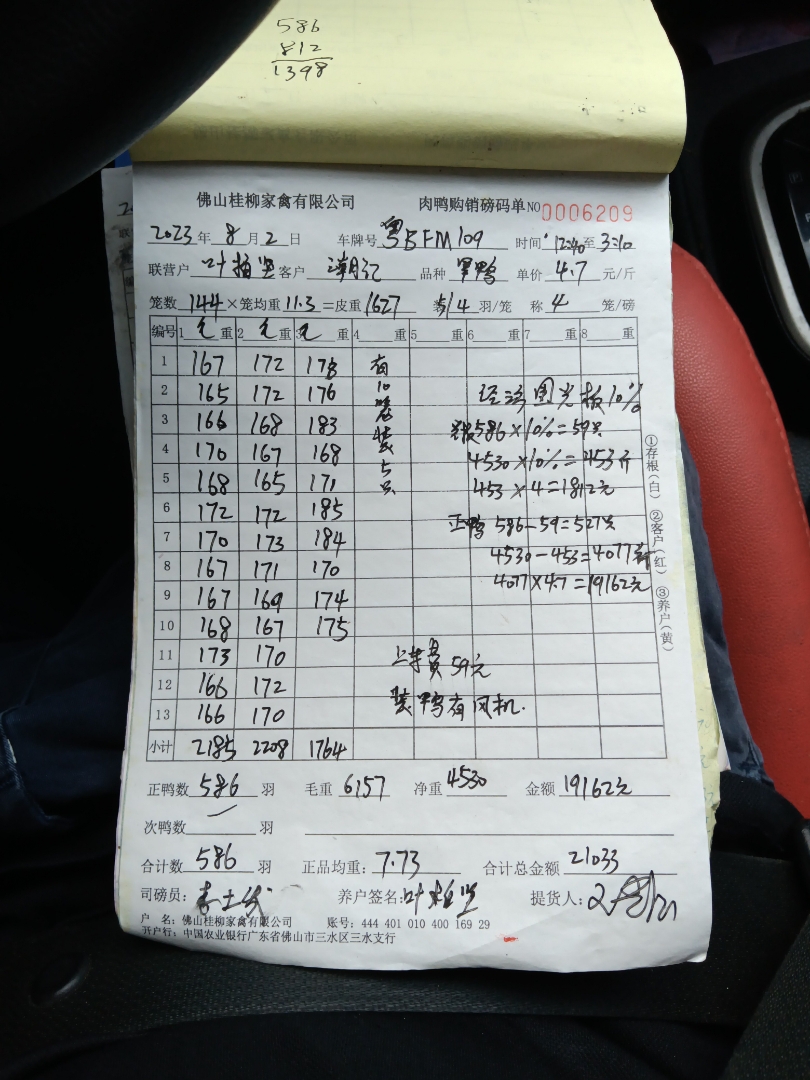 586
812
1398
佛山桂柳家禽有限公司 肉鸭购销磅码单 NO 0006209
2023年 8月 2日 车牌号 粤BFM109 时间 12:40至3:10
联营户 叶柏坚 客户 潮记 品种 单价 4.7 元/斤
笼数 144 ×笼均重 11.3 =皮重 1627 5/4 羽/笼 称 4 笼/磅
编号 1 毛重 2 毛重 3 毛重 4 重 5 重 6 重 7 重 8 重
1 167 172 178 有
2 165 172 176 10 经济图光板10%
3 166 168 183 586×10%=59只
4 170 167 168 装 4530×10%=453斤
5 168 165 171 5只 453×4=1812元
6 172 172 185 正鸭 586-59=527只
7 170 173 184 4530-453=4077斤
8 167 171 170 4077×4.7=19162元
9 167 169 174
10 168 167 175
11 173 170 上车费59元
12 166 172 装鸭有风机.
13 166 170
小计 2185 2208 1764
①存根(白) ②客户(红) ③养户(黄)
正鸭数 586 羽 毛重 6157 净重 4530 金额 19162元
次鸭数 / 羽
合计数 586 羽 正品均重: 7.73 合计总金额 21033
司磅员: 养户签名: 叶柏坚 提货人:
户 名: 佛山桂柳家禽有限公司 账号: 444 401 010 400 169 29
开户行: 中国农业银行广东省佛山市三水区三水支行